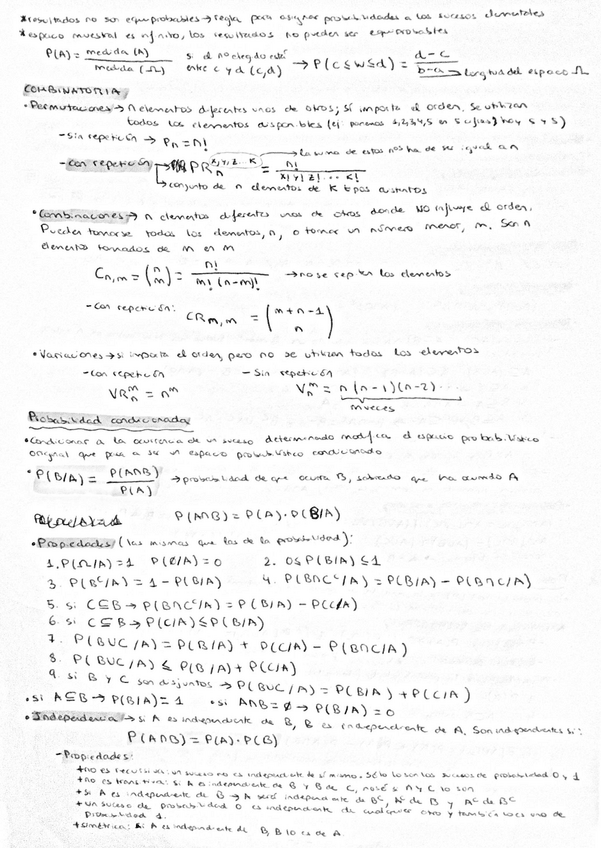 *resultados no son equiprobables → regla para asignar probabilidades a los sucesos elementales
*espacio muestral es infinito, los resultados no pueden ser equiprobables
P(A) = medida (A) / medida (Ω) si el nº elegido está entre c y d (c,d) → P(c ≤ w ≤ d) = d - c / b - a → longitud del espacio Ω
COMBINATORIA
• Permutaciones → n elementos diferentes unos de otros; sí importa el orden, se utilizan
todos los elementos disponibles (ej: ponemos 1,2,3,4,5 en 5 hay 5 y 5)
- sin repetición → Pn = n!
→ la suma de estos nos ha de ser igual a n
- con repetición → PR n x,y,z...k = n! / x! y! z! ... k!
→ conjunto de n elementos de k tipos distintos
• Combinaciones → n elementos diferentes unos de otros donde NO influye el orden.
Pueden tomarse todos los elementos, n, o tomar un número menor, m. Son n
elementos tomados de m en m
Cn,m = (n m) = n! / m! (n-m)! → no se repiten los elementos
- con repetición: CRm,m = (m+n-1 n)
• Variaciones → si importa el orden, pero no se utilizan todos los elementos
- con repetición - sin repetición
VR n m = n^m V n m = n(n-1)(n-2)...
m veces
Probabilidad condicionada
• condicionar a la ocurrencia de un suceso determinado modifica el espacio probabilístico
original que pasa a ser un espacio probabilístico condicionado
• P(B/A) = P(A∩B) / P(A) → probabilidad de que ocurra B, sabiendo que ha ocurrido A
P(A∩B) = P(A)·P(B/A)
• Propiedades (las mismas que las de la probabilidad):
1. P(Ω/A) = 1 P(Ø/A) = 0 2. 0 ≤ P(B/A) ≤ 1
3. P(Bᶜ/A) = 1 - P(B/A) 4. P(B∩Cᶜ/A) = P(B/A) - P(B∩C/A)
5. si C⊆B → P(B∩Cᶜ/A) = P(B/A) - P(C/A)
6. si C⊆B → P(C/A) ≤ P(B/A)
7. P(B∪C/A) = P(B/A) + P(C/A) - P(B∩C/A)
8. P(B∪C/A) ≤ P(B/A) + P(C/A)
9. si B y C son disjuntos → P(B∪C/A) = P(B/A) + P(C/A)
• si A⊆B → P(B/A) = 1 • si A∩B = Ø → P(B/A) = 0
• Independencia → si A es independiente de B, B es independiente de A. Son independientes si:
P(A∩B) = P(A)·P(B)
- Propiedades:
+ no es recursiva: un suceso no es independiente de sí mismo. Sólo lo son los sucesos de probabilidad 0 y 1
+ no es transitiva: si A es independiente de B y B de C, no sé si A y C lo son
+ si A es independiente de B → A será independiente de Bᶜ, Aᶜ de B y Aᶜ de Bᶜ
+ un suceso de probabilidad 0 es independiente de cualquier otro y también lo es uno de
probabilidad 1.
+ simétrica: si A es independiente de B, B lo es de A.